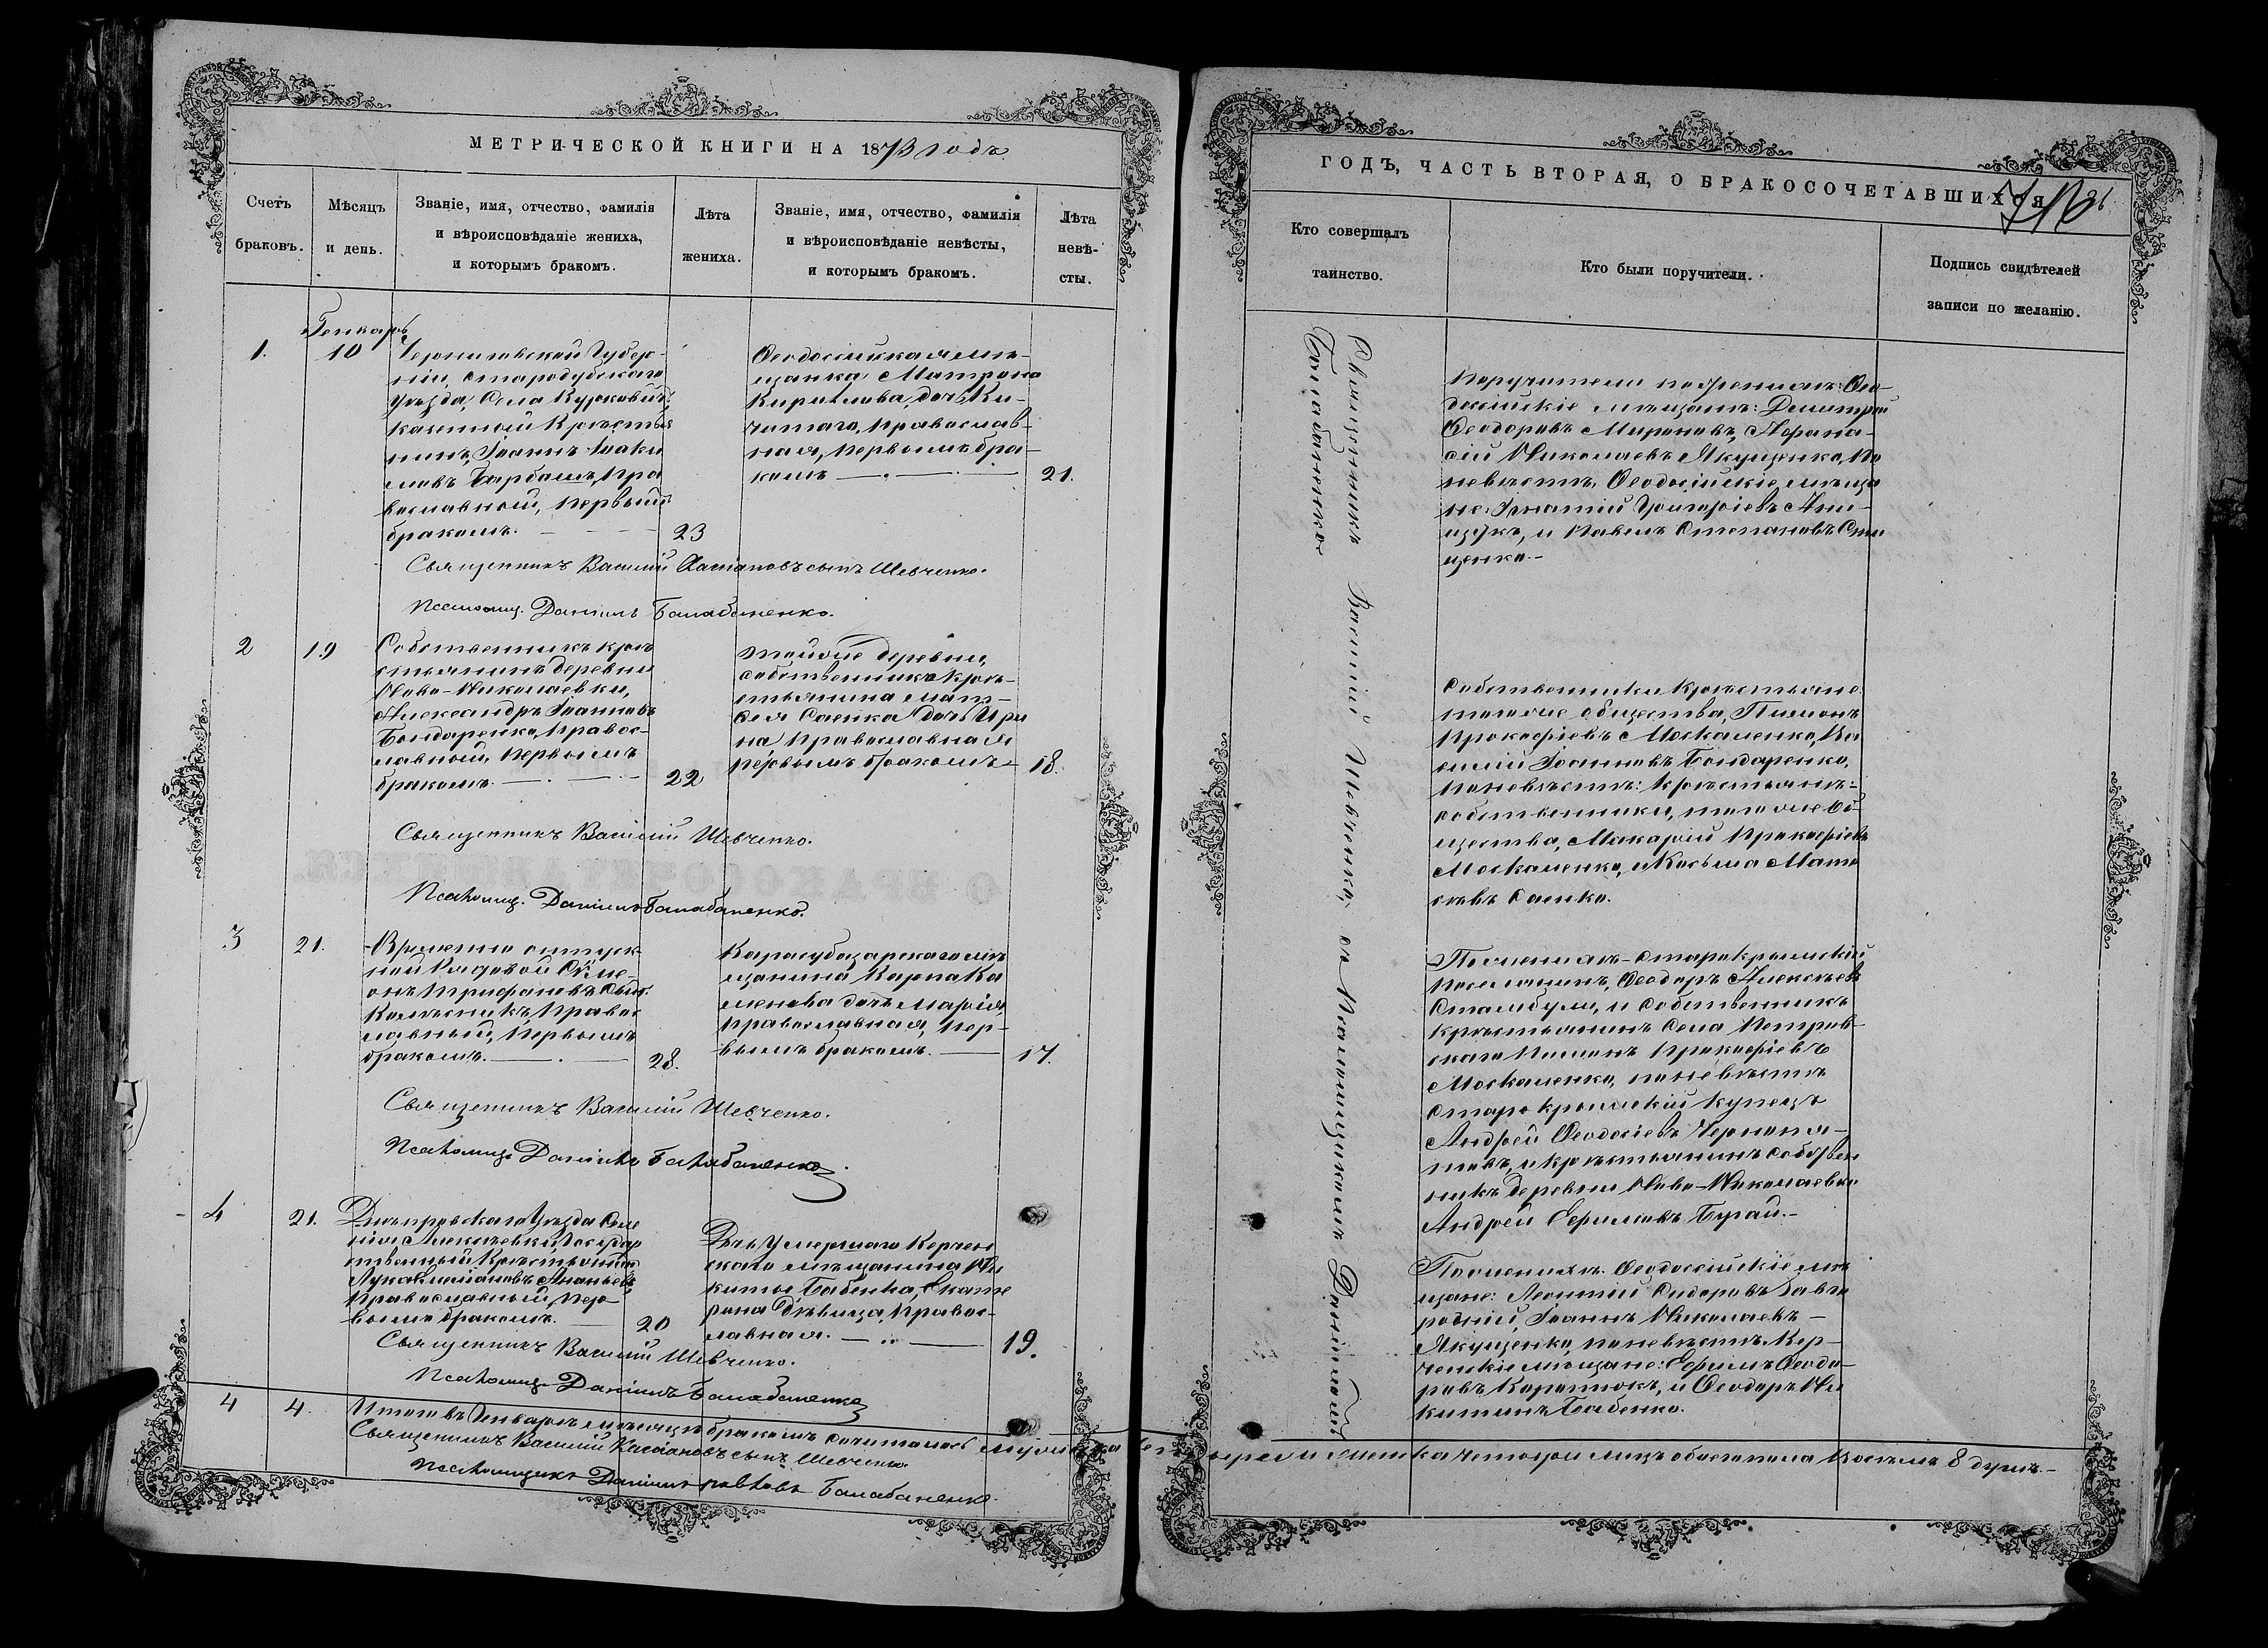 МЕТРИЧЕСКОЙ КНИГИ НА 1873 годъ
Счетъ
браковъ.
Мѣсяцъ
и день.
Званіе, имя, отчество, фамилія
и вѣроисповѣданіе жениха,
и которымъ бракомъ.
Лѣта
жениха.
Званіе, имя, отчество, фамилія
и вѣроисповѣданіе невѣсты,
и которымъ бракомъ.
Лѣта
невѣ-
сты.
Генварь
1.
10
Черниговской Губер-
ніи, Стародубскаго
Уѣзда, Села Курковичъ,
казенный Крестья
нинъ, Іоаннъ
Пра
вославной, первымъ
бракомъ.
23
Ѳеодосійская мѣ-
щанка Матрона
Кирилова, дочь
Православ-
ная, первымъ бра-
комъ
21.
Священникъ Василій Касіановъ сынъ Шевченко.
Псаломщ. Даніилъ Балабаненко.
2
19
Собственникъ кре
стьянинъ деревни
Ново-Николаевки,
Александръ Іоанновъ
Бондаренко, Правос-
лавный, первымъ
бракомъ.
22
тойже деревни,
собственника Кре-
стьянина Мат-
ѳея Саенка дочь Ири
на, Православная
первымъ бракомъ
18.
Священникъ Василій Шевченко.
Псаломщ. Даніилъ Балабаненко.
3
21.
Временно отпуск-
ной Рядовой Сѵме-
онъ Трифоновъ сынъ
Колѣсникъ, Правос
лавный, Первымъ
бракомъ.
28.
Карасубазарскаго мѣ
щанина Карпа Ка
менева дочь Марія,
Православная, пер-
вымъ бракомъ.
17.
Священникъ Василій Шевченко.
Псаломщ. Даніилъ Балабаненко
4
21.
Днѣпровскаго Уѣзда Селе
нія Алексѣевки, Государ
ственный Крестьянинъ
Лука Ананьевъ
Православный, пер-
вымъ бракомъ.
20
Дочь умершаго Керчен
скаго мѣщанина Ни
киты Бабенка, Екате
рина Дѣвица, Правос-
лавная.
19.
Священникъ Василій Шевченко.
Псаломщ. Даніилъ Балабаненко
4
4.
Итого въ Генварѣ мѣсяцѣ бракомъ сочиталось мужеска четыре и женска четыри лицъ обоего пола восемь 8 душъ.
Священникъ Василій Касіановъ сынъ Шевченко
Псаломщикъ Даніилъ Павловъ Балабаненко.
ГОДЪ, ЧАСТЬ ВТОРАЯ, О БРАКОСОЧЕТАВШИХСЯ
Кто совершалъ
таинство.
Кто были поручители.
Подпись свидѣтелей
записи по желанію.
Священникъ Василій Шевченко, съ Псаломщикомъ Даніиломъ
Балабаненко
Поручители по женихѣ: Ѳео-
досійскіе мѣщане: Димитрій
Ѳеодоровъ Мироновъ, Аѳана-
сій Николаевъ Якущенко, по
невѣстѣ, Ѳеодосійскіе мѣща
не: Игнатій Григоріевъ Ани-
щукъ, и Павелъ Степановъ
щенко.
Собственники Крестьяне
тогоже общества, Пименъ
Прокофіевъ Москаленко, Ва
силій Іоанновъ Бондаренко,
по невѣстѣ: крестьяне-
собственники, тогоже об-
щества, Макарій Прокофіевъ
Москаленко, и Косьма Матѳ
еевъ Саенко.
По женихѣ - Старокрымскій
поселянинъ, Ѳеодоръ Алексѣевъ
Стамбули, и собственникъ
крестьянинъ Села Петров-
скаго Пименъ Прокофіевъ
Москаленко, по невѣстѣ
Старокрымскій Купецъ
Андрей Ѳеодосіевъ
и крестьянинъ собствен
никъ деревни Ново-Николаевки
Андрей Ефимовъ Бурай.-
По женихѣ. Ѳеодосійскіе мѣ
щане: Леонтій Сидоровъ Завго
родній, Іоаннъ Николаевъ -
Якущенко, по невѣстѣ Кер-
ченскіе мѣщане: Ефимъ Ѳеодо-
ровъ Коротюкъ, и Ѳеодоръ Ни
китинъ Бабенко.